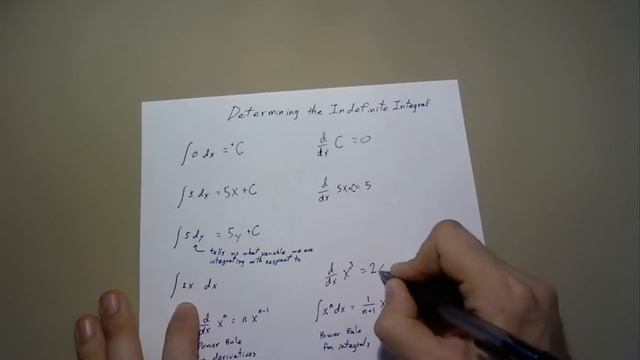 Determining the Indefinite Integral
∫0 dx = +C
d/dx C = 0
∫5 dx = 5x+C
d/dx 5x+C = 5
∫5 dy = 5y+C
tells us what variable we are
integrating with respect to
∫2x dx
d/dx x² = 2
d/dx xⁿ = n xⁿ⁻¹
∫xⁿ dx = 1/n+1 x
Power Rule
derivatives
Power Rule
for integrals